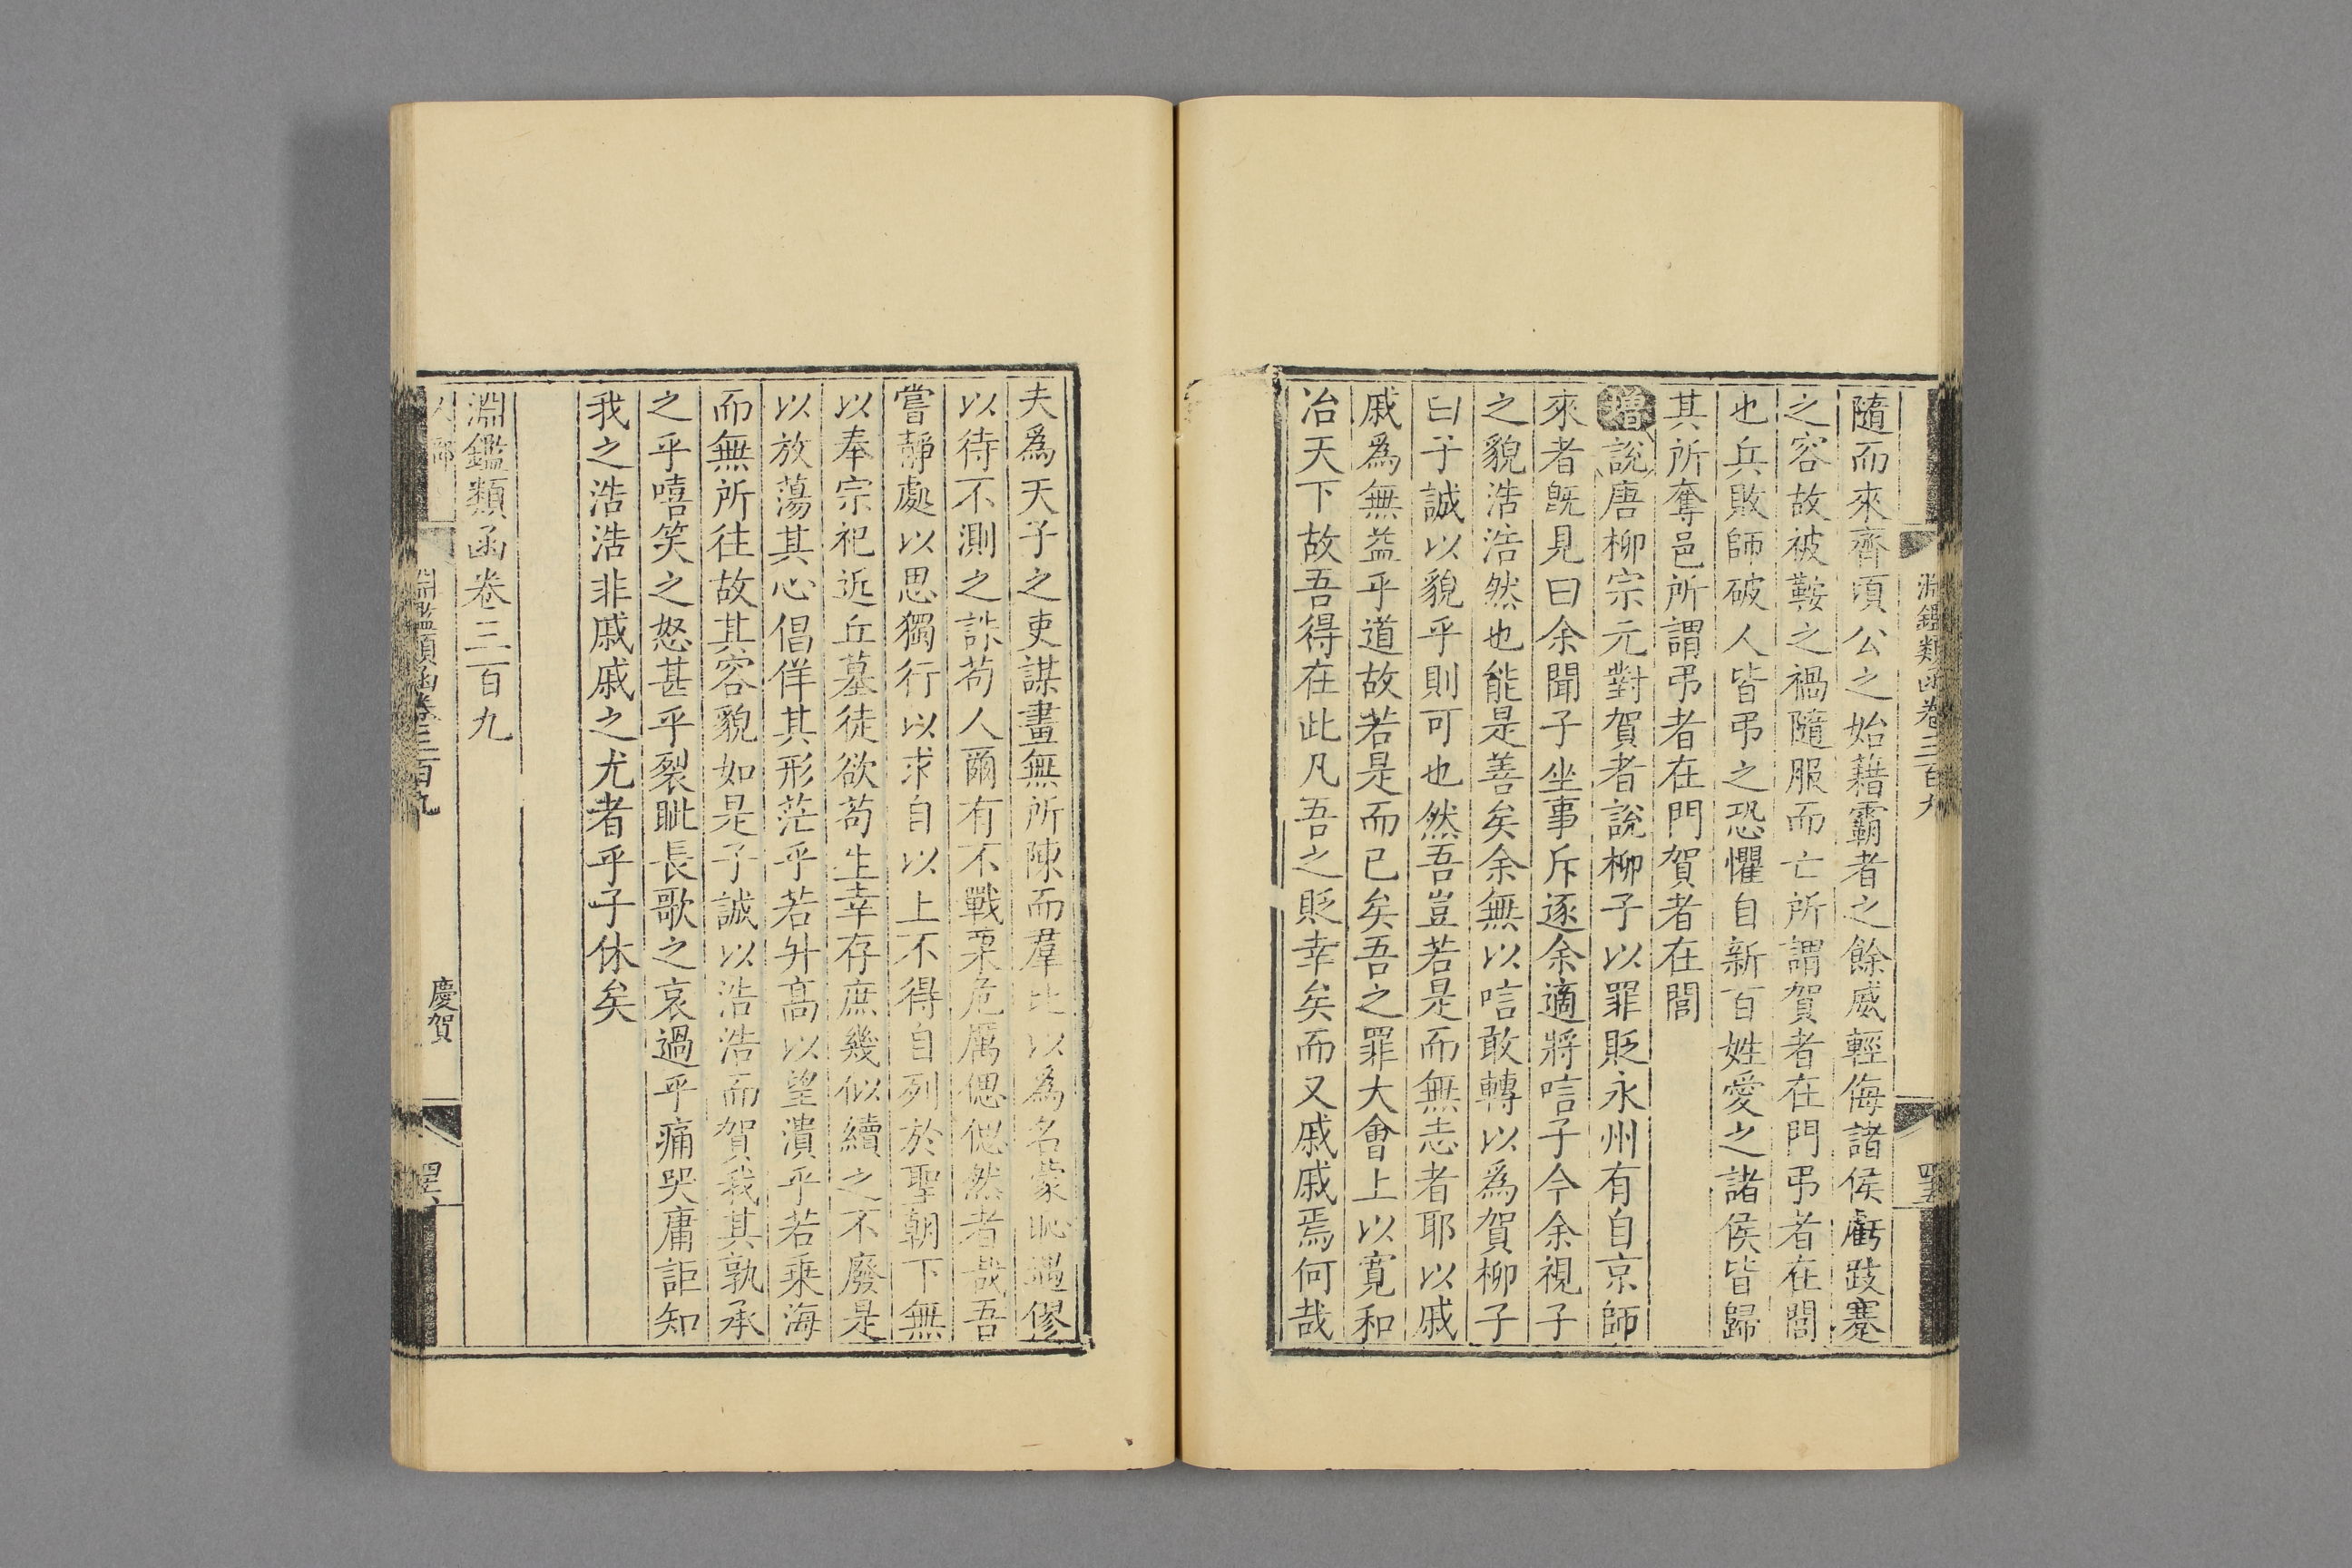 淵鑑類函卷三百九
四五
隨而來齊頃公之始藉霸者之餘威輕侮諸侯虧跂蹇
之容故被鞍之禍隨服而亡所謂賀者在門弔者在閭
也兵敗師破人皆弔之恐懼自新百姓愛之諸侯皆歸
其所奪邑所謂弔者在門賀者在閭
增說唐柳宗元對賀者說柳子以罪貶永州有自京師
來者旣見曰余聞子坐事斥逐余適將唁子今余視子
之貌浩浩然也能是善矣余無以唁敢轉以爲賀柳子
曰子誠以貌乎則可也然吾豈若是而無志者耶以戚
戚爲無益乎道故若是而已矣吾之罪大會上以寬和
冶天下故吾得在此凡吾之貶幸矣而又戚戚焉何哉
夫爲天子之吏謀畫無所陳而羣比以爲名蒙恥遇僇
以待不測之誅苟人爾有不戰栗危厲偲偲然者哉吾
嘗靜處以思獨行以求自以上不得自列於聖朝下無
以奉宗祀近丘墓徒欲苟生幸存庶幾似續之不廢是
以放蕩其心倡佯其形茫乎若升高以望潰乎若乗海
而無所往故其容貌如是子誠以浩浩而賀我其孰承
之乎嘻笑之怒甚乎裂眦長歌之哀過乎痛哭庸詎知
我之浩浩非戚戚之尤者乎子休矣
淵鑑類函卷三百九
人部
淵鑑類函卷三百九
慶賀